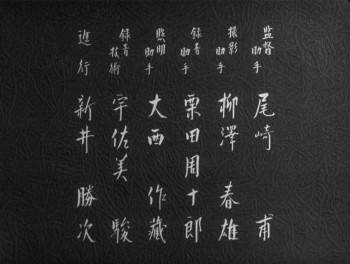 監督助手 尾崎 甫
撮影助手 柳澤 春雄
録音助手 栗田周十郎
照明助手 大西 作藏
録音技術 宇佐美 駿
進行 新井 勝次